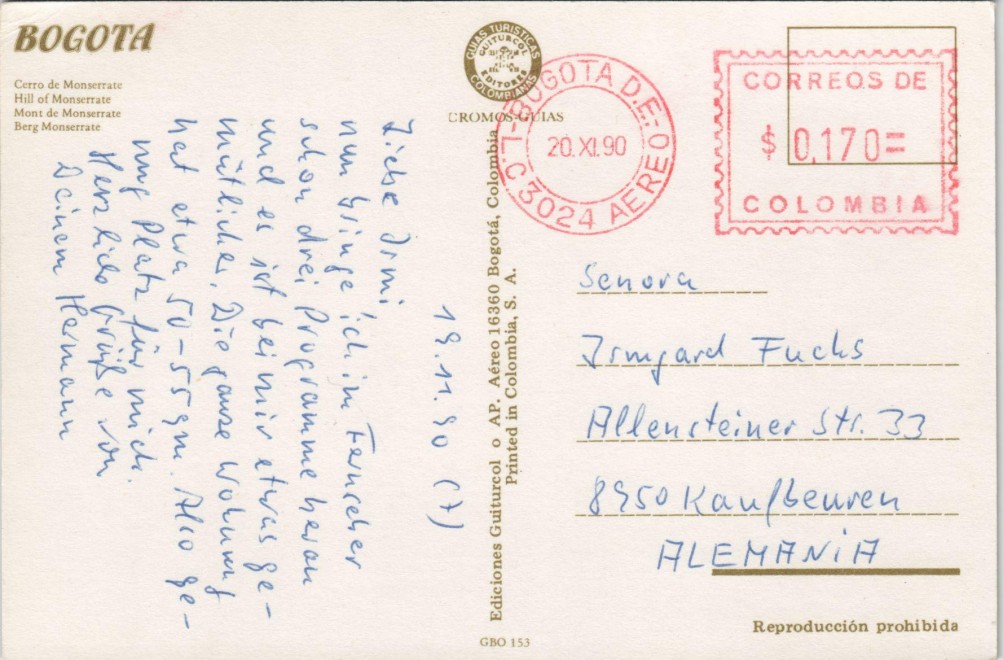 BOGOTA
Cerro de Monserrate
Hill of Monserrate
Mont de Monserrate
Berg Monserrate
GUIAS TURISTICAS
GUITURCOL
EDITORES
COLOMBIANAS
CROMOS-GUIAS
L.C. BOGOTA D.E.-O
20. XI. 90
3024 AEREO
CORREOS DE
$ 0.170=
COLOMBIA
19.11.90 (7)
Liebe Irmi,
nun bringe ich im Fernseher
schon drei Programme heran
und es ist bei mir etwas ge-
mütlicher. Die ganze Wohnung
hat etwa 50-55 qm. Also ge-
nug Platz für mich.
Herzliche Grüße von
Deinem Hermann
Ediciones Guiturcol o AP. Aéreo 16360 Bogotá, Colombia
Printed in Colombia, S. A.
Senora
Irmgard Fuchs
Allensteiner Str. 33
8950 Kaufbeuren
ALEMANiA
Reproducción prohibida
GBO 153